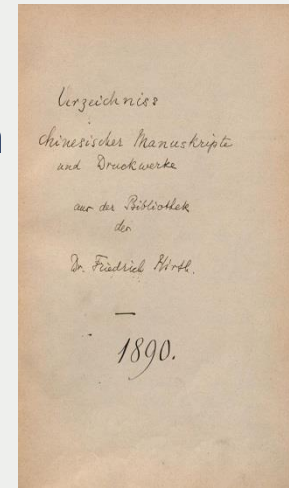 Verzeichniss
chinesischer Manuskripte
und Druckwerke
aus der Bibliothek
des
Dr. Friedrich Hirth.
1890.